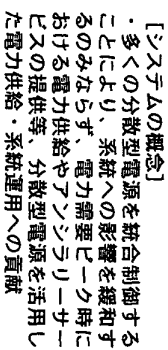 [システムの概念]
・多くの分散型電源を統合制御する
ことにより、系統への影響を緩和す
るのみならず、電力需要ピーク時に
おける電力供給やアンシラリーサー
ビスの提供等、分散型電源を活用し
た電力供給・系統運用への貢献